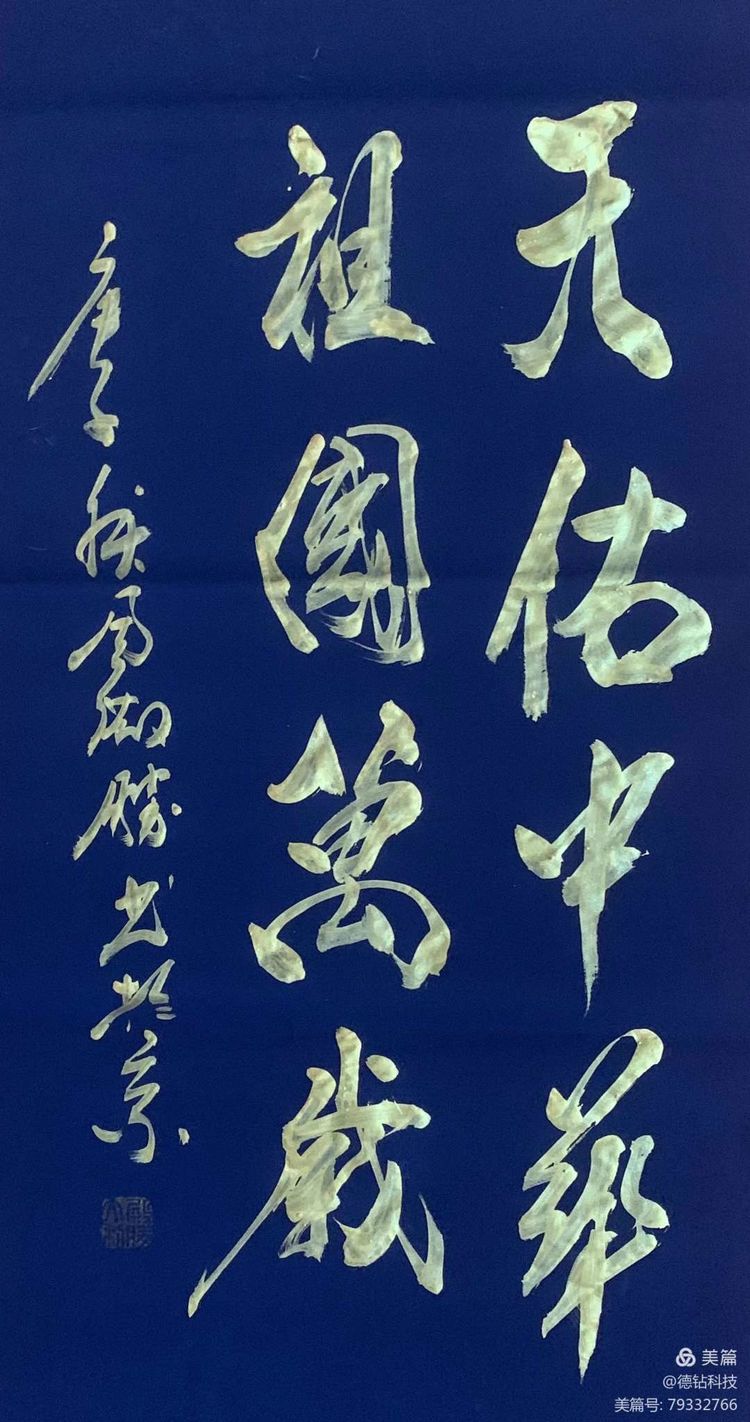 天佑中華
祖國萬歲
庚子秋月 勝书於京
美篇
@德钻科技
美篇号: 79332766